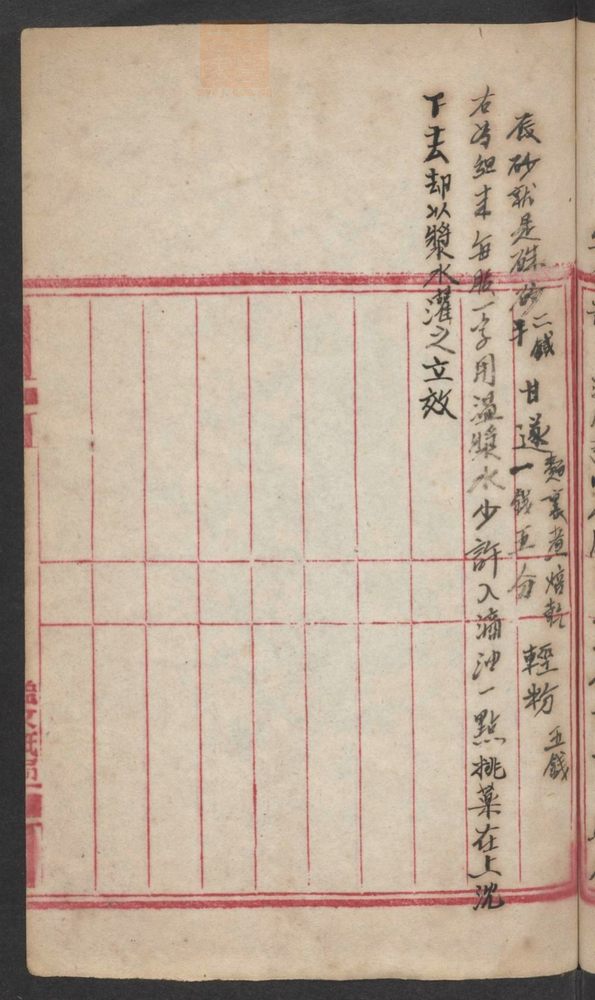 辰砂就是硃砂二錢半 甘遂一錢五分 麵裹煮焙乾 輕粉五錢
右為細末每服一字用溫漿水少許入滴油一點挑藥在上沈
下去却以漿水灌之立效